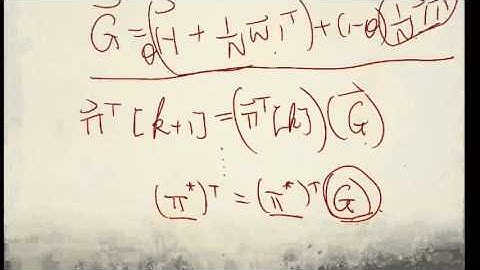 G⃗ = θ(H⃗ + 1/N w⃗ 1ᵀ) + (1-θ)(1/N 1⃗ 1⃗ᵀ)
π⃗ᵀ [k+1] = (π⃗ᵀ [k]) (G⃗)
(π*)ᵀ = (π*)ᵀ (G)